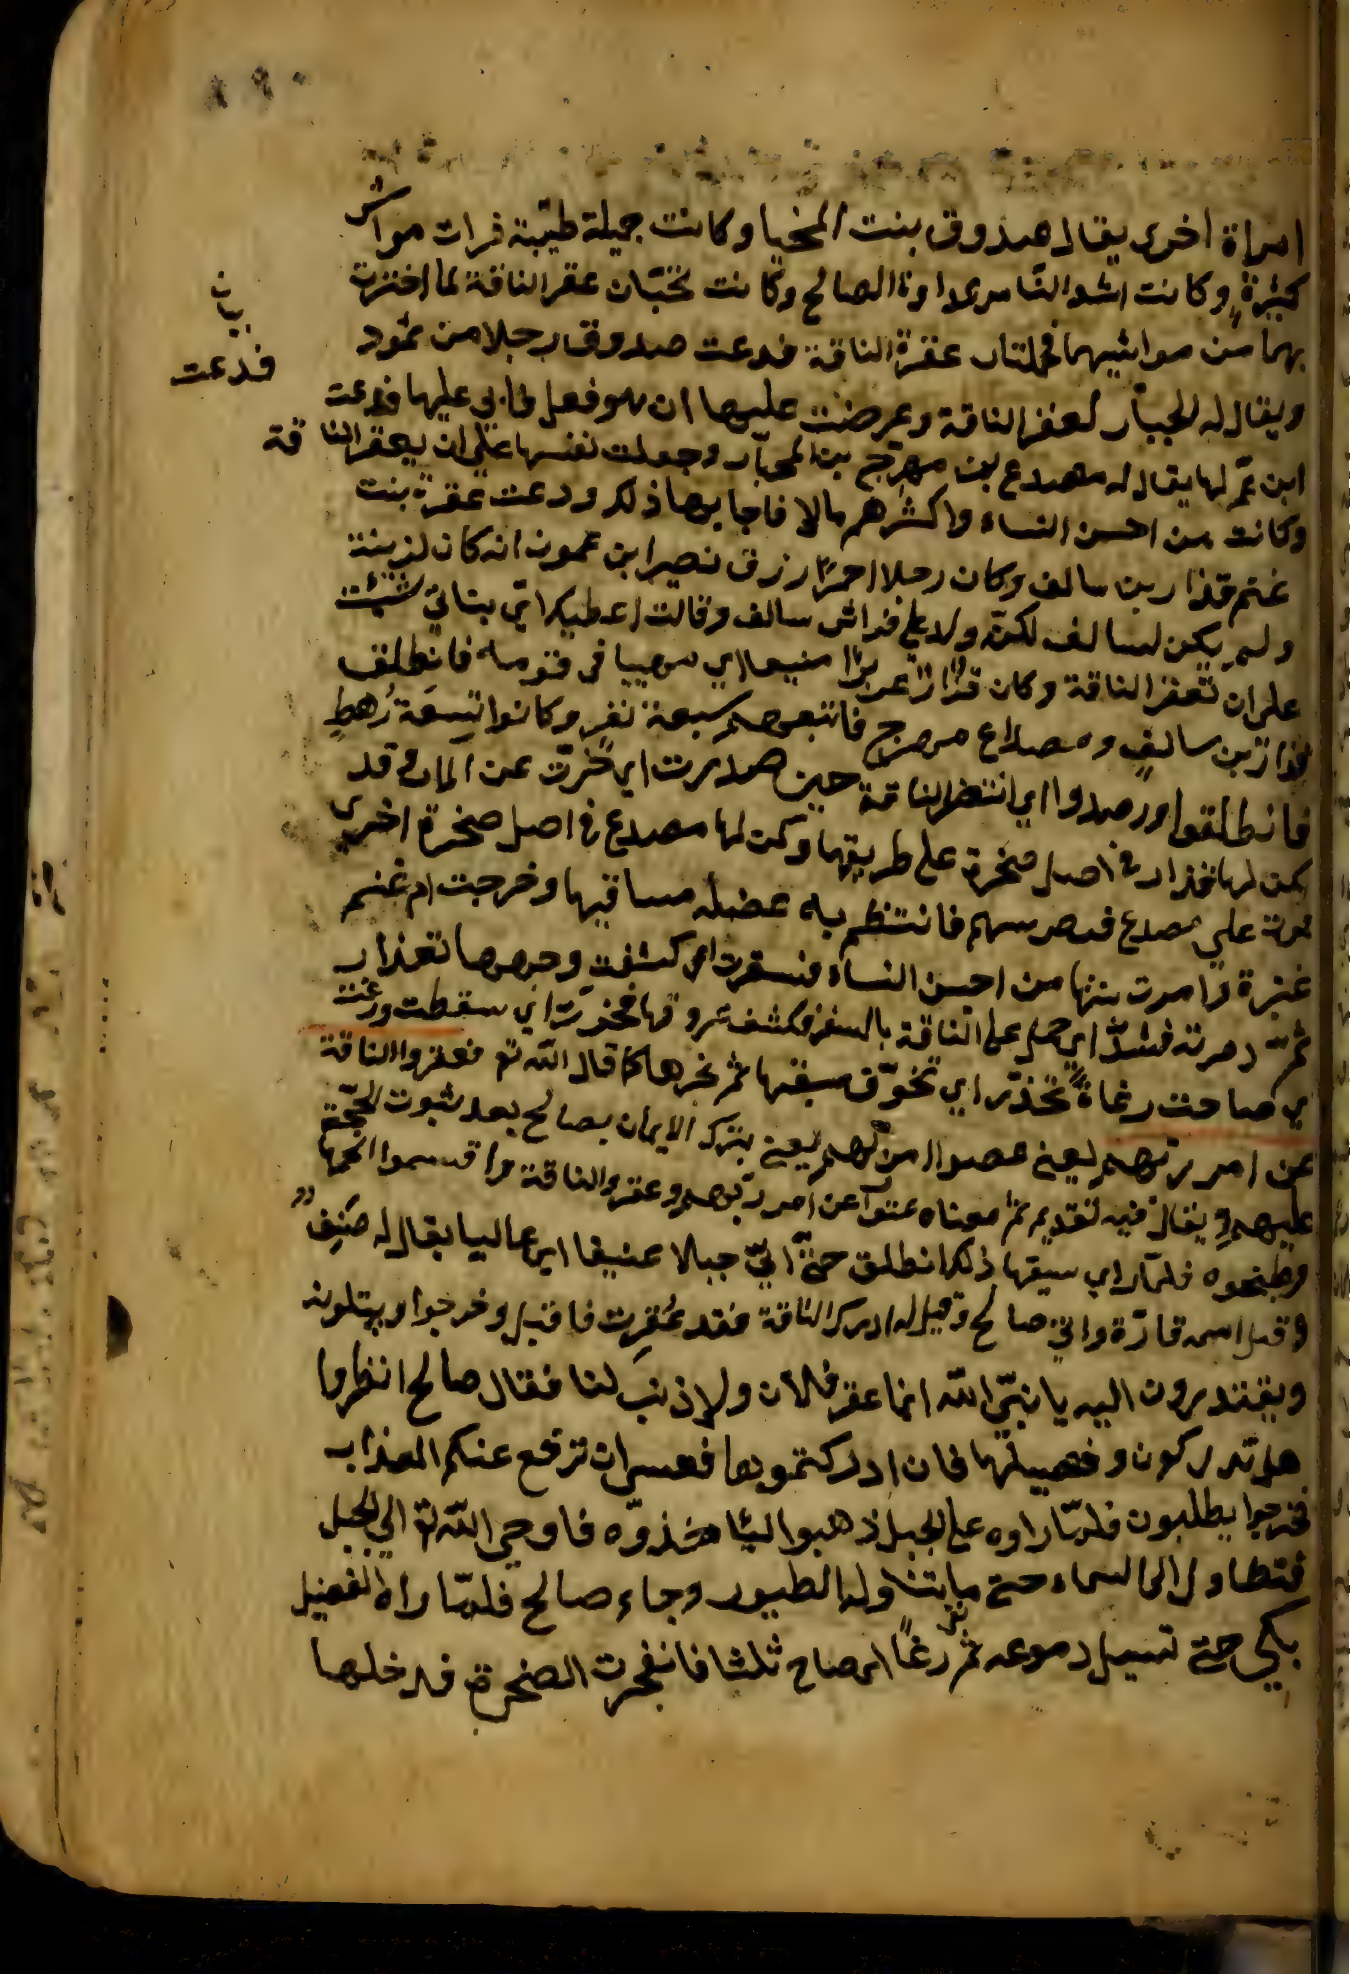 امراة اخرى يقال صدوق بنت المخيا وكانت جميلة طيّبة ذرات مواش
كثيرة وكانت اشد النّاس عداوة الصالح وكانت تحبّان عقر الناقة لما اضرت
بهما من مواشيهما فحملتا عقرة الناقة فدعت صدوق رجلا من ثمود
ويقال له الجبار لعقر الناقة وعرضت عليها ان هو فعل فابى عليها فدعت
بيان
فدعت
ابن عمّ لها يقال له مصدع بن مهرّج بن المحيا وجعلت نفسها على ان يعقر الناقة
وكانت من احسن النساء واكثرهم مالا فاجابها ذلك ودعت عقرة بنت
غنم قذار بن سالف وكان رجلا احمر ازرق نصيرا بن عمون انه كان لزينة
ولم يكن لسالف لكنّه ولد على فراش سالف وقالت اعطيك ايّ بناتي شئت
على ان تعقر الناقة وكان قذار عزيزا منيعا اي مهيبا في قومه فانطلق
قذار بن سالفٍ ومصداع مهرج فاتبعهم سبعة نفر وكانوا تِسعَة رَهطٍ
فانطلقوا ورصدوا اي انتظر الناقة حين صدرت اي خرّت عن الماء قد
كمن لها قذار في اصل صخرة على طريقها وكمن لها مصدع في اصل صخرة اخرى
فمرت على مصدع بسهم فانتظم به عضلة ساقها وخرجت ام غنم
عنيزة وامرت بنتها من احسن النساء فسفرت اي كشفت وجهها لقذار
ثمّ دمرته فشدّ اي حمل على الناقة بالسفر فكشف عروقها فخرّت اي سقطت ورغت
اي صاحت رغاة تحذّر اي تخوّف سقبها ثم نحرها كما قال الله تع فعقروا الناقة
عن امر ربّهم يعني عصوا امر ربّهم يعني بترك الايمان بصالح بعد ثبوت الحجّة
عليهم ويقال فيه تقديم معناه عتوا عن امر ربّهم وعقروا الناقة واقتسموا لحمها
وطبخوه فلمّا راى سقبها ذلك انطلق حتّى اتى جبالا عنيفا اي عاليا يقال له صَنِف
وقيل اسمه قارّة واتى صالح وقيل له ادرك الناقة فقد عُقِرت فاقبل وخرجوا ويتلونه
ويعتذرون اليه يا نبيّ الله انما عقر فلان ولا ذنب لنا فقال صالح انظروا
هل تدركون فصيلها فان ادركتموها فعسى ان ترفع عنكم العذاب
فخرجوا يطلبون فلمّا راوه على الجبل ذهبوا لياخذوه فاوحى الله تع الى الجبل
فتطاول الى السماء حتى ما يتناوله الطيور وجاء صالح فلمّا راه الفصيل
بكى حتى تسيل دموعه ثمّ رغا اي صاح ثلثا فانفجرت الصخرة فدخلها